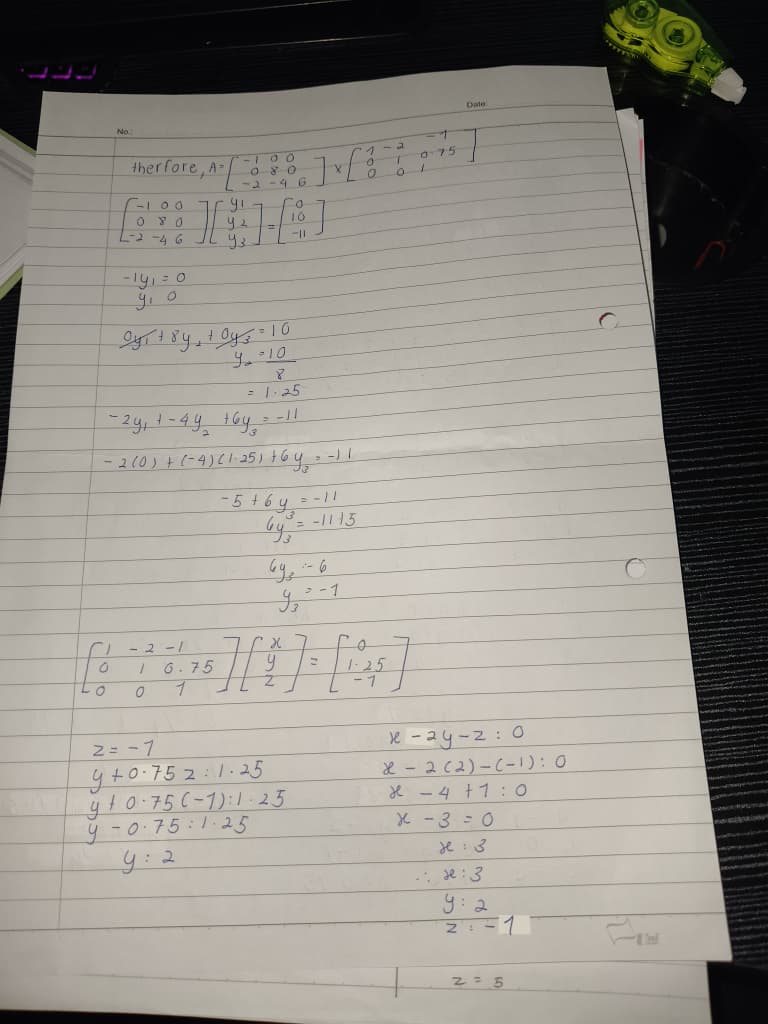 No.: Date:
therfore, A = [ -1 0 0 ] x [ 1 -2 -1 ]
[ 0 8 0 ] [ 0 1 0.75 ]
[ -2 -4 6 ] [ 0 0 1 ]
[ -1 0 0 ] [ y₁ ] = [ 0 ]
[ 0 8 0 ] [ y₂ ] [ 10 ]
[ -2 -4 6 ] [ y₃ ] [ -11 ]
-1y₁ = 0
y₁ 0
0y₁ + 8y₂ + 0y₃ = 10
y₂ = 10
8
= 1.25
-2y₁ + -4y₂ + 6y₃ = -11
-2(0) + (-4)(1.25) + 6y₃ = -11
-5 + 6y₃ = -11
6y₃ = -11+5
6y₃ = -6
y₃ = -1
[ 1 -2 -1 ] [ x ] = [ 0 ]
[ 0 1 0.75 ] [ y ] [ 1.25 ]
[ 0 0 1 ] [ z ] [ -1 ]
z = -1
y + 0.75 z : 1.25
y + 0.75 (-1) : 1.25
y - 0.75 : 1.25
y : 2
x - 2y - z : 0
x - 2(2) - (-1) : 0
x - 4 + 1 : 0
x - 3 = 0
x : 3
∴ x : 3
y : 2
z : -1
z = 5